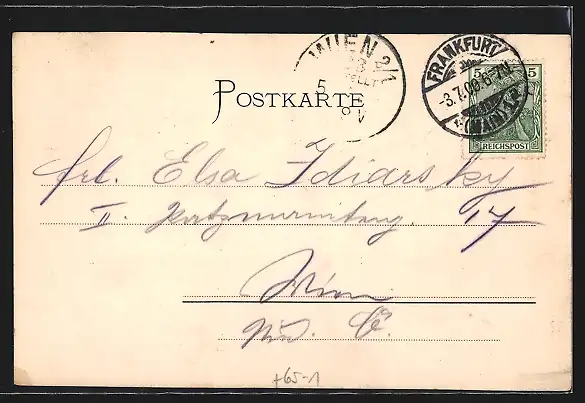 WIEN 2/1
5
8 V
POSTKARTE
FRANKFURT
-3.7.00.6-7N
(MAIN)
5
REICHSPOST
Frl. Elsa Idiarsky
II. 17
Wien
+65-1